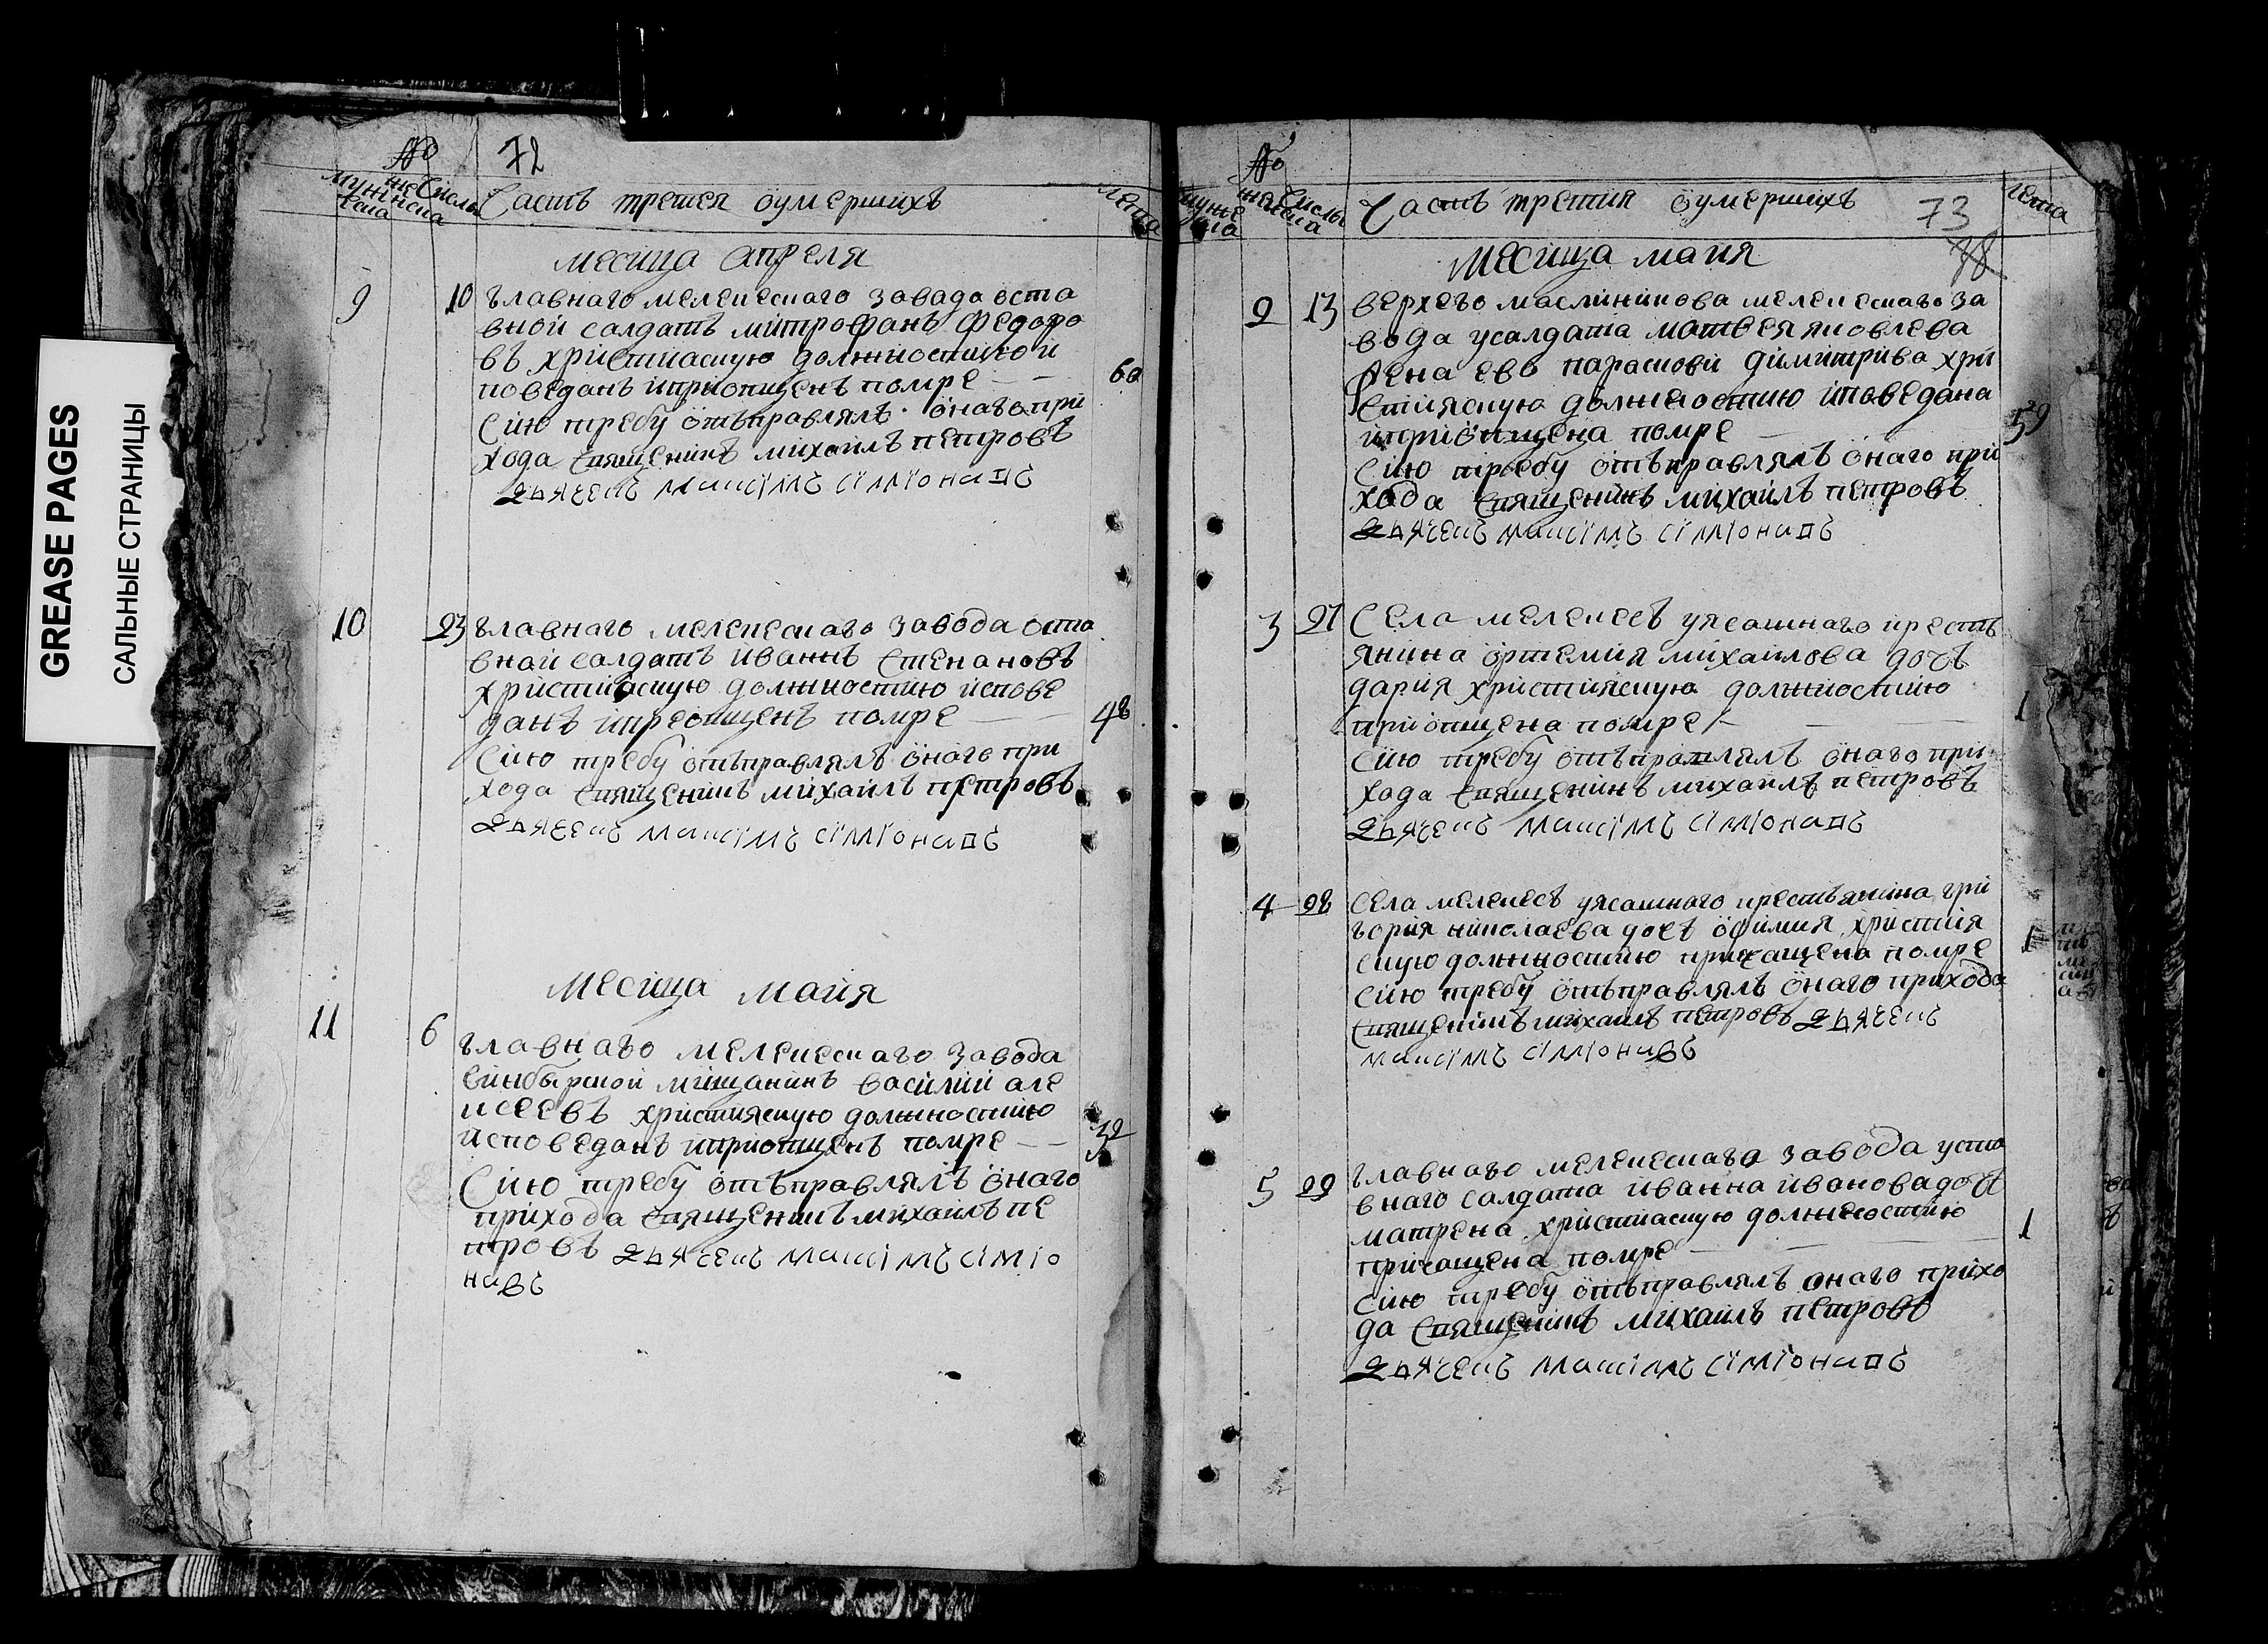 GREASE PAGES
САЛЬНЫЕ СТРАНИЦЫ
№ 72
мужеска
женска
числы
Часть третея оумершихъ
лета
месица апреля
9 10 главнаго мелекескаго завада оста
вной салдатъ митрофанъ федоро
въ християскую должностию и
поведанъ иприопщенъ помре 60
Сию требу отъправлялъ онаго при
хода священикъ михаилъ петровъ
дьячекъ максимъ симионовъ
10 23 главнаго мелекескаго завода оста
внай салдатъ иваннъ степановъ
християскую должностию испове
данъ ипреопщенъ помре 48
Сию требу отъправлялъ онаго при
хода священикъ михаилъ петровъ
дьячекъ максимъ симионовъ
месица маия
11 6 главнаго мелекескаго завода
синбирской мищанинъ василий але
ксеевъ християскую должностию
исповеданъ иприопщенъ помре 32
Сию требу отъправлялъ онаго
прихода священикъ михаилъ пе
тровъ дьячекъ максимъ симио
навъ
№
мужеска
женска
числы
Часть третия оумершихъ 73
лета
месица маия 78
2 13 верхего масленикова мелекескаго за
вода усалдата матвея яковлева
жена ево парасковия димитрива хри
стияскую должностию иповедана
иприопщена помре 59
сию требу отъправлялъ онаго при
хода священикъ михаилъ петровъ
дьячекъ максимъ симионовъ
3 27 Села мелекесъ уясашнаго кресть
янина ортемия михаилова дочь
дария християскую должностию
приопщена помре 1
сию требу отъправлялъ онаго при
хода священикъ михаилъ петровъ
дьячекъ максимъ симионовъ
4 28 села мелекесъ уясашнаго крестьянина гри
гория николаева дочь офимия христия
скую должностию причащена помре 1
сию требу отъправлялъ онаго прихода
священикъ михаилъ петровъ дьячекъ
максимъ симионавъ
5 29 главнаго мелекескаго завода уста
внаго салдата иванна иванова дочь
матрена християскую должностию
причащена помре 1
сию требу отъправлялъ онаго прихо
да священикъ михаилъ петровъ
дьячекъ максимъ симионовъ